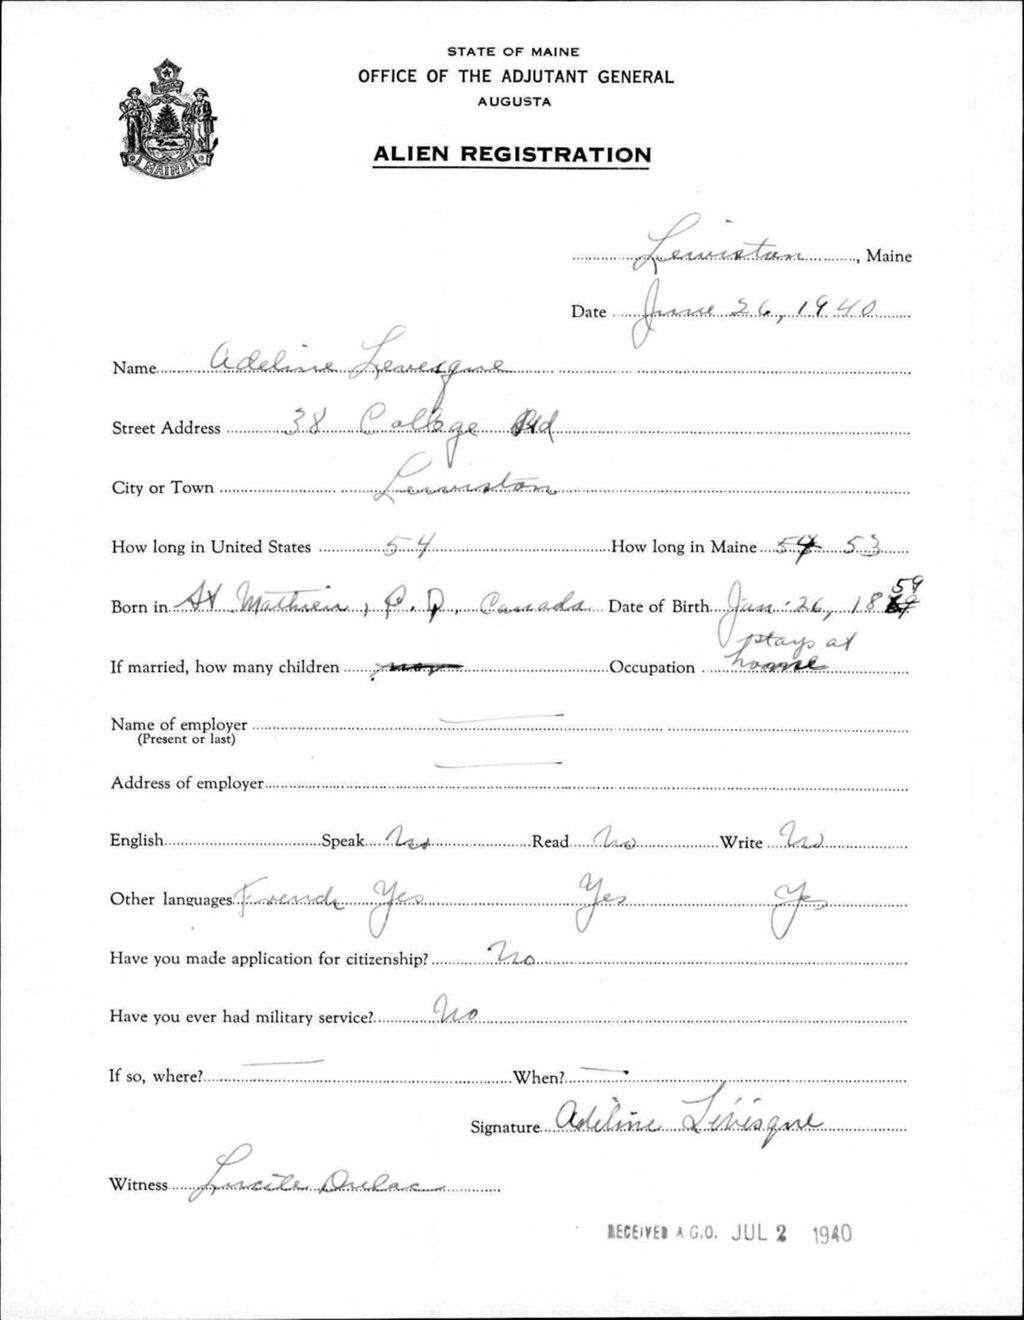 STATE OF MAINE
OFFICE OF THE ADJUTANT GENERAL
AUGUSTA
ALIEN REGISTRATION
MAINE
Lewiston, Maine
Date June 26, 1940
Name Adeline Levesque
Street Address 38 College Rd
City or Town Lewiston
How long in United States 54 How long in Maine 54 53
Born in St Mathieu, P.Q, Canada Date of Birth Jan. 26, 1859
If married, how many children Occupation stays at home
Name of employer
(Present or last)
Address of employer
English Speak No Read No Write No
Other languages French Yes Yes Yes
Have you made application for citizenship? No
Have you ever had military service? No
If so, where? When?
Signature Adéline Lévesque
Witness Lucile
RECEIVED A.G.O. JUL 2 1940